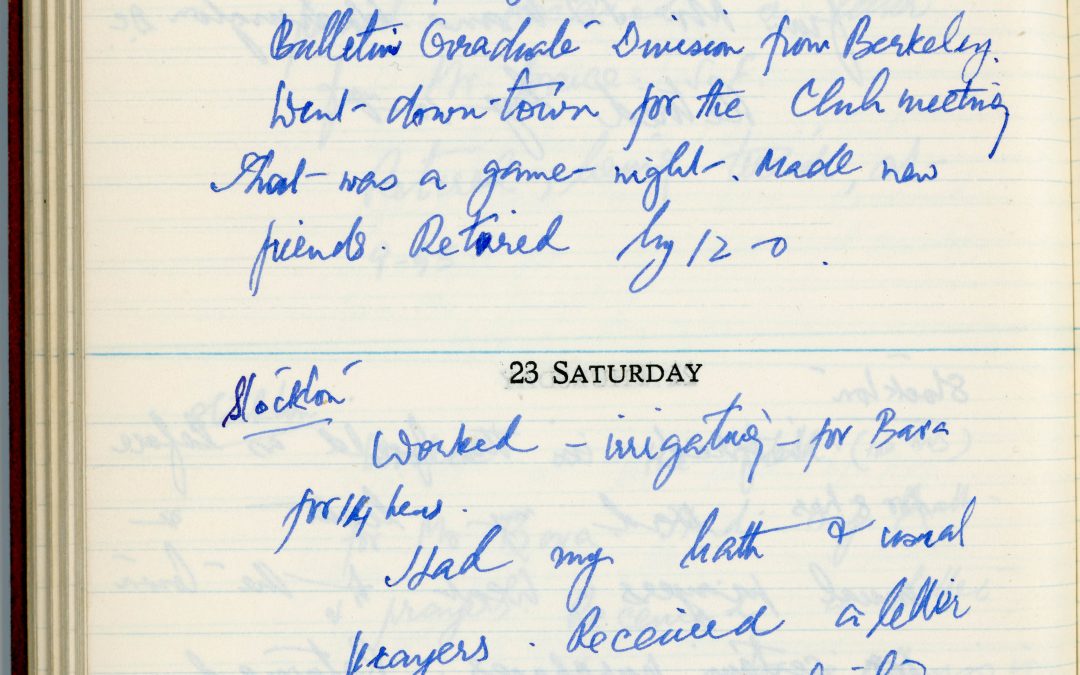 Bulletin Graduate Division from Berkeley.
Went down-town for the Club meeting
that was a game night. Made new
friends. Retired by 12-0.
23 SATURDAY
Stockton
Worked - irrigating - for Bava
for 14 hrs.
Had my bath & usual
prayers. Received a letter